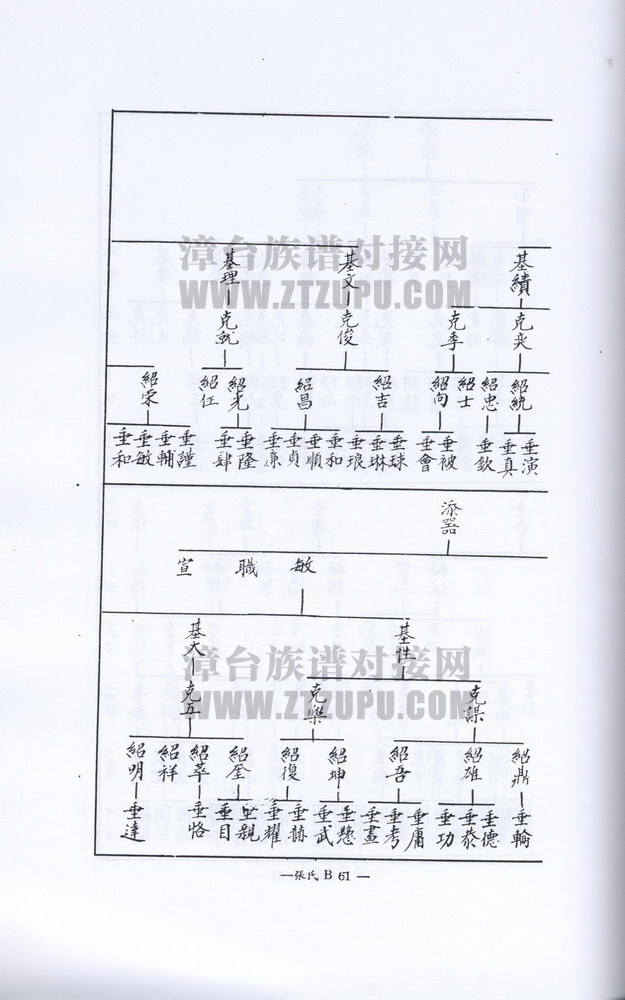 基績
基文
基理
克奕
克季
克俊
克就
紹統
紹忠
紹士
紹向
紹吉
紹昌
紹光
紹任
紹榮
垂演
垂真
垂欽
垂被
垂會
垂球
垂琳
垂琅
垂和
垂順
垂貞
垂廉
垂隆
垂肆
垂謹
垂輔
垂敏
垂和
添器
敏
職
宣
基性
基大
克謀
克樂
克五
紹鼎
紹雄
紹吾
紹坤
紹復
紹奎
紹萃
紹祥
紹明
垂輪
垂德
垂恭
垂功
垂庸
垂考
垂畫
垂武
垂赫
垂耀
垂親
垂目
垂恪
垂達
漳台族谱对接网
WWW.ZTZUPU.COM
漳台族谱对接网
WWW.ZTZUPU.COM
—張氏 B 61 —